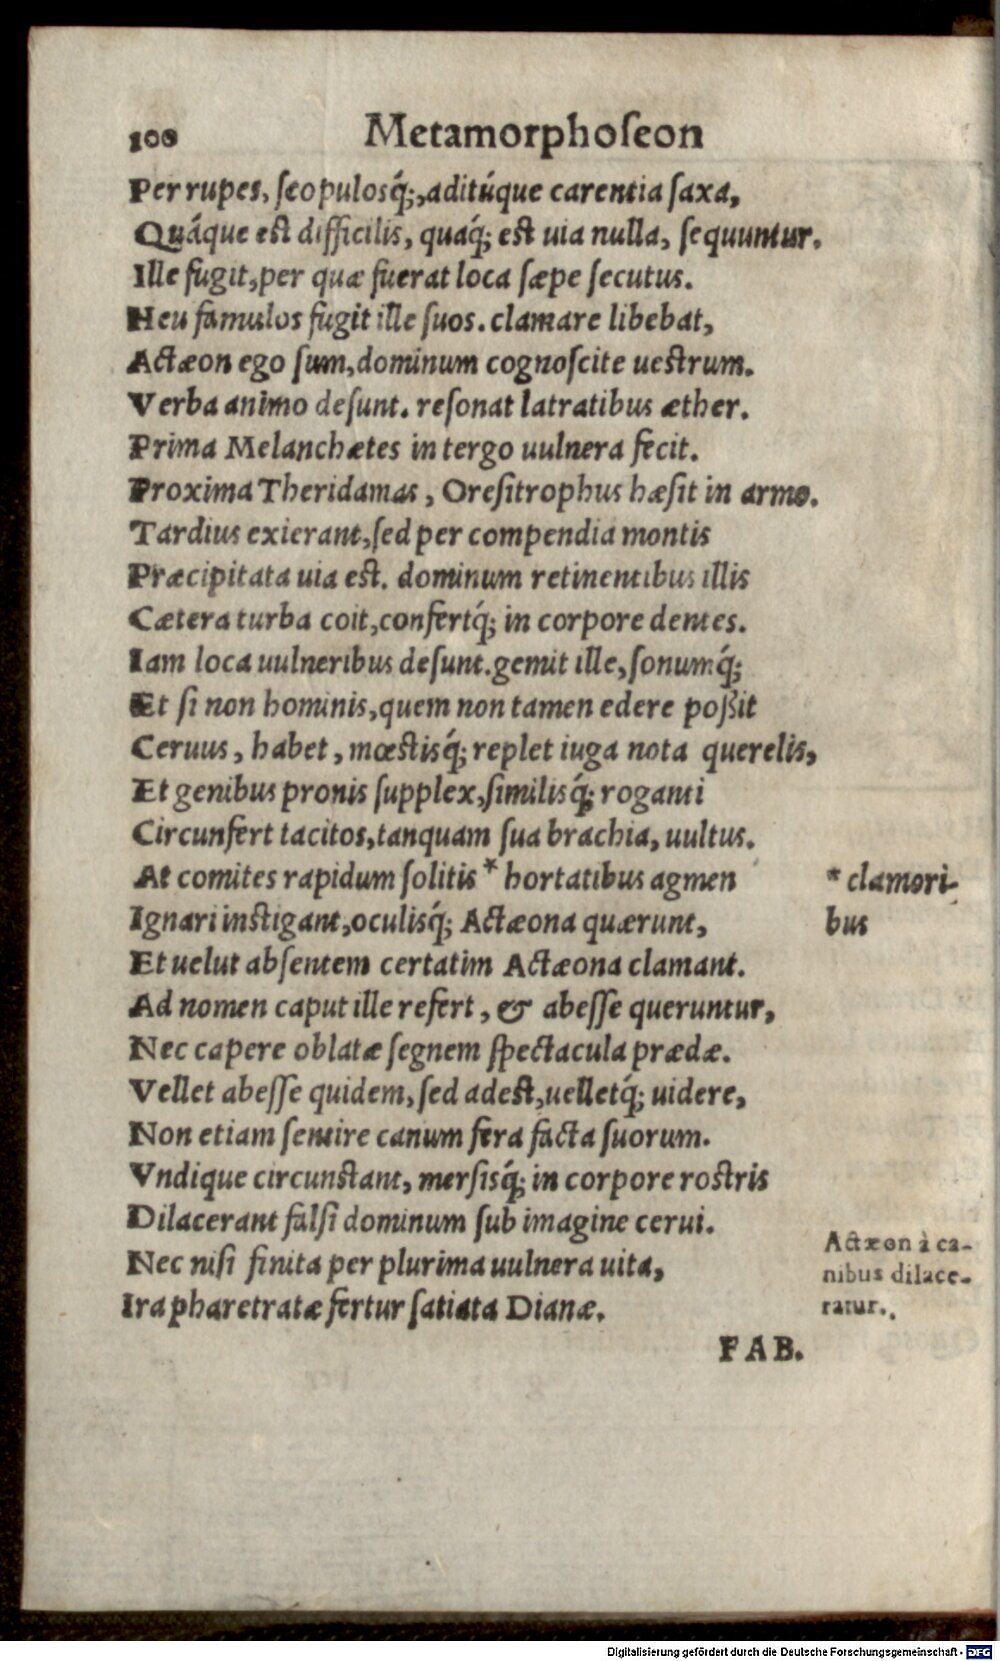 100 Metamorphoſeon
Per rupes, ſcopulosq́;, aditúque carentia ſaxa,
Quáque est difficilis, quaq́; est uia nulla, ſequuntur.
Ille fugit, per quæ fuerat loca ſæpe ſecutus.
Heu famulos fugit ille ſuos. clamare libebat,
Actæon ego ſum, dominum cognoſcite uestrum.
Verba animo deſunt. reſonat latratibus æther.
Prima Melanchætes in tergo uulnera fecit.
Proxima Theridamas, Oreſitrophus hæſit in armo.
Tardius exierant, ſed per compendia montis
Præcipitata uia est. dominum retinentibus illis
Cætera turba coit, confertq́; in corpore dentes.
Iam loca uulneribus deſunt. gemit ille, ſonumq́;
Et ſi non hominis, quem non tamen edere poßit
Ceruus, habet, mœstisq́; replet iuga nota querelis,
Et genibus pronis ſupplex, ſimilisq́; roganti
Circunfert tacitos, tanquam ſua brachia, uultus.
At comites rapidum ſolitis * hortatibus agmen
* clamori-
bus
Ignari instigant, oculisq́; Actæona quærunt,
Et uelut abſentem certatim Actæona clamant.
Ad nomen caput ille refert, & abeſſe queruntur,
Nec capere oblatæ ſegnem ſpectacula prædæ.
Vellet abeſſe quidem, ſed adest, uelletq́; uidere,
Non etiam ſentire canum fera facta ſuorum.
Vndique circunstant, merſisq́; in corpore rostris
Dilacerant falſi dominum ſub imagine cerui.
Nec niſi finita per plurima uulnera uita,
Ira pharetratæ fertur ſatiata Dianæ.
Actæon à ca-
nibus dilace-
ratur.
FAB.
Digitalisierung gefördert durch die Deutsche Forschungsgemeinschaft - DFG